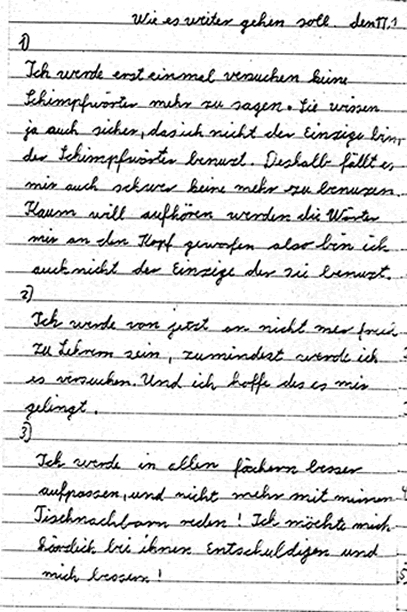 Wie es weiter gehen soll. den 17.1
1)
Ich werde erst einmal versuchen keine
Schimpfwörter mehr zu sagen. Sie wissen
ja auch sicher, das ich nicht der Einzige bin,
der Schimpfwörter benuzt. Deshalb fällt es
mir auch schwer keine mehr zu benuzen.
Kaum will aufhören werden die Wörter
mir an den Kopf geworfen also bin ich
auch nicht der Einzige der sie benuzt.
2)
Ich werde von jetzt an nicht mer frech
zu Lehrern sein, zumindest werde ich
es versuchen. Und ich hoffe des es mir
gelingt.
3)
Ich werde in allen fächern besser
aufpassen, und nicht mehr mit meinen
Tischnachbarn reden! Ich möchte mich
bei ihnen Entschuldigen und
mich bessern!